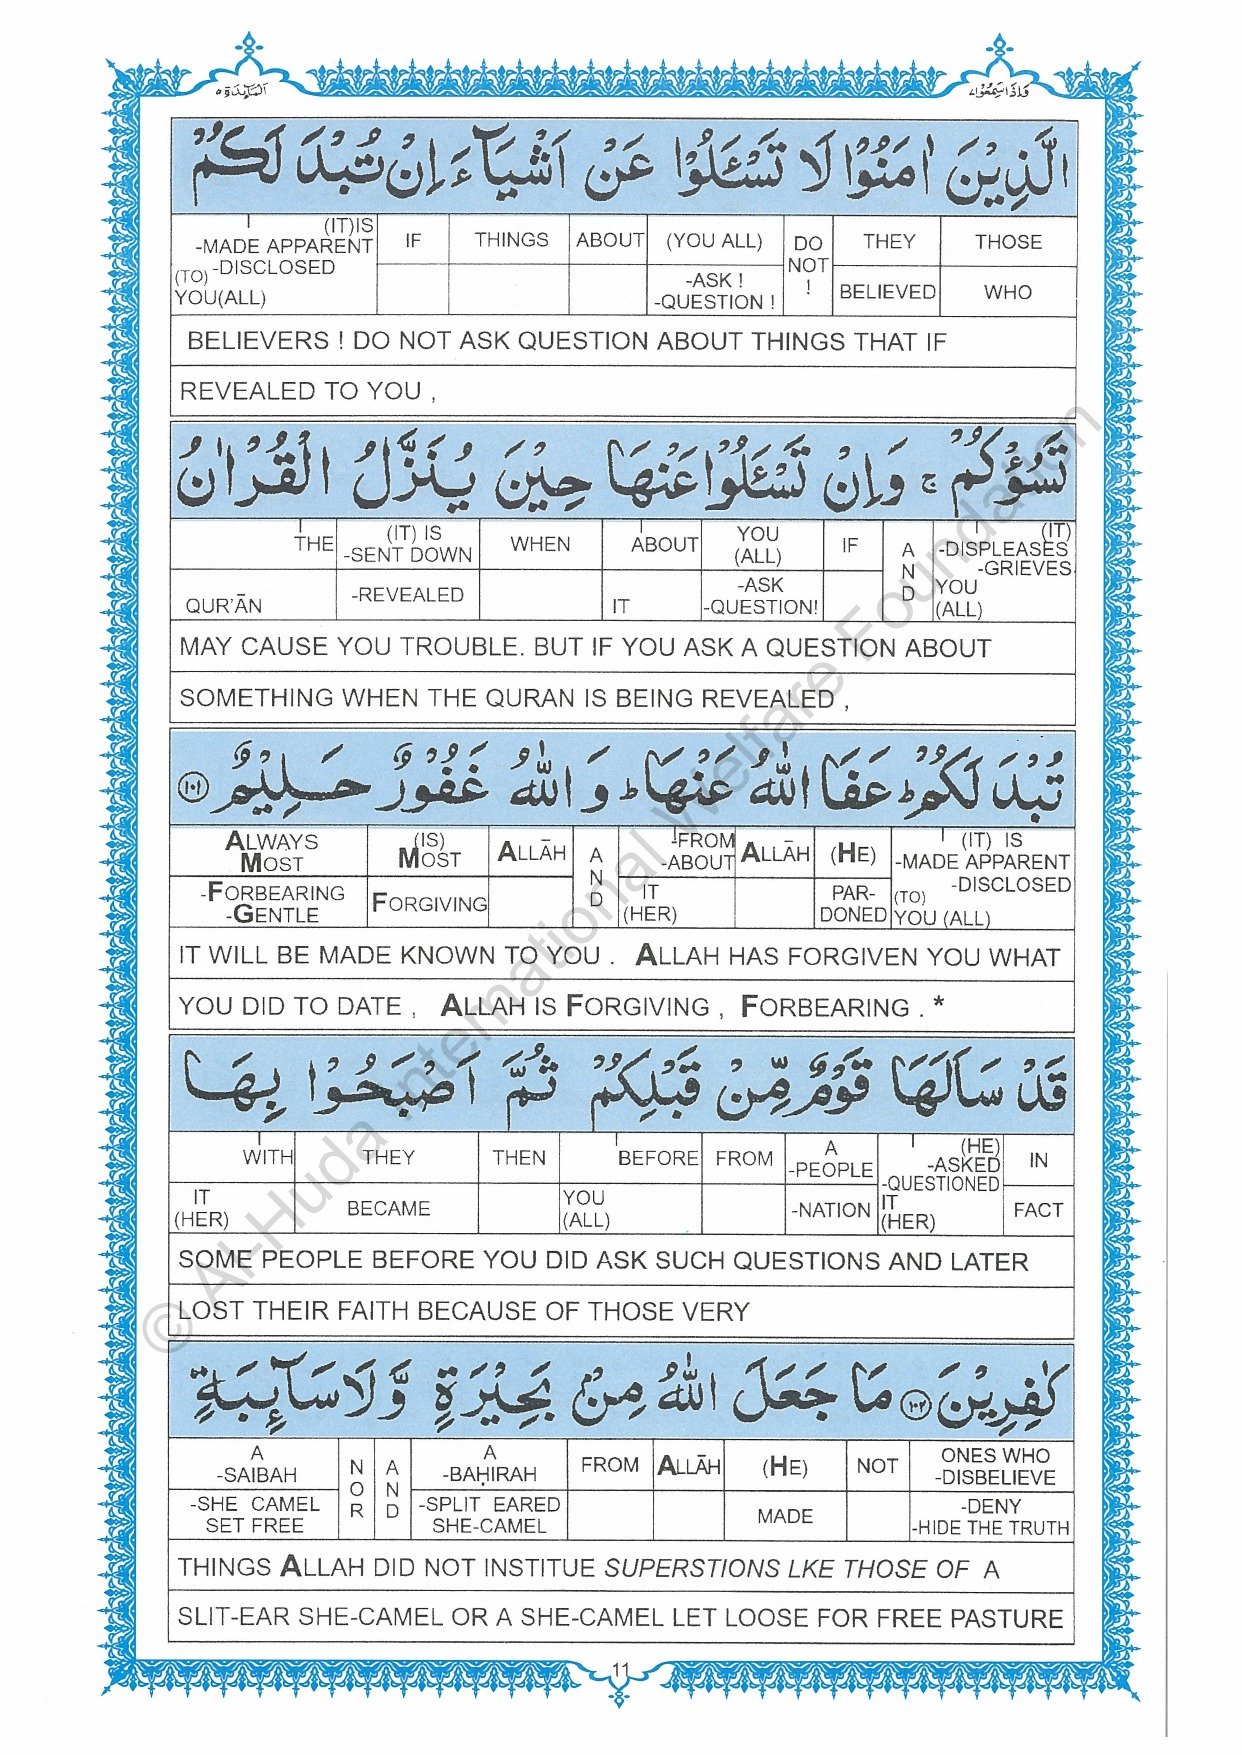 المَآئِدَة ٥
وَاِذَا سَمِعُوْا ٧
الَّذِيْنَ اٰمَنُوْا لَا تَسْـَٔلُوْا عَنْ اَشْيَآءَ اِنْ تُبْدَ لَكُمْ
THOSE WHO
THEY BELIEVED
DO NOT !
(YOU ALL) -ASK ! -QUESTION !
ABOUT
THINGS
IF
(IT)IS -MADE APPARENT -DISCLOSED (TO) YOU(ALL)
BELIEVERS ! DO NOT ASK QUESTION ABOUT THINGS THAT IF
REVEALED TO YOU ,
تَسُؤْكُمْ ۚ وَاِنْ تَسْـَٔلُوْا عَنْهَا حِيْنَ يُنَزَّلُ الْقُرْاٰنُ
(IT) -DISPLEASES -GRIEVES YOU (ALL)
AND
IF
YOU (ALL) -ASK -QUESTION!
ABOUT IT
WHEN
(IT) IS -SENT DOWN -REVEALED
THE QUR'ĀN
MAY CAUSE YOU TROUBLE. BUT IF YOU ASK A QUESTION ABOUT
SOMETHING WHEN THE QURAN IS BEING REVEALED ,
تُبْدَ لَكُمْ ؕ عَفَا اللّٰهُ عَنْهَا ؕ وَ اللّٰهُ غَفُوْرٌ حَلِيْمٌ ۝١٠١
(IT) IS -MADE APPARENT -DISCLOSED (TO) YOU (ALL)
(HE) PAR- DONED
ALLĀH
-FROM -ABOUT IT (HER)
AND
ALLĀH
(IS) MOST FORGIVING
ALWAYS MOST -FORBEARING -GENTLE
IT WILL BE MADE KNOWN TO YOU . ALLAH HAS FORGIVEN YOU WHAT
YOU DID TO DATE , ALLAH IS FORGIVING , FORBEARING . *
قَدْ سَاَلَهَا قَوْمٌ مِّنْ قَبْلِكُمْ ثُمَّ اَصْبَحُوْا بِهَا
IN FACT
(HE) -ASKED -QUESTIONED IT (HER)
A -PEOPLE -NATION
FROM
BEFORE YOU (ALL)
THEN
THEY BECAME
WITH IT (HER)
SOME PEOPLE BEFORE YOU DID ASK SUCH QUESTIONS AND LATER
LOST THEIR FAITH BECAUSE OF THOSE VERY
كٰفِرِيْنَ ۝١٠٢ مَا جَعَلَ اللّٰهُ مِنْۢ بَحِيْرَةٍ وَّلَا سَآئِبَةٍ
ONES WHO -DISBELIEVE -DENY -HIDE THE TRUTH
NOT
(HE) MADE
ALLĀH
FROM
A -BAḤIRAH -SPLIT EARED SHE-CAMEL
AND
NOR
A -SAIBAH -SHE CAMEL SET FREE
THINGS ALLAH DID NOT INSTITUE SUPERSTIONS LKE THOSE OF A
SLIT-EAR SHE-CAMEL OR A SHE-CAMEL LET LOOSE FOR FREE PASTURE
11
© Al-Huda International Welfare Foundation